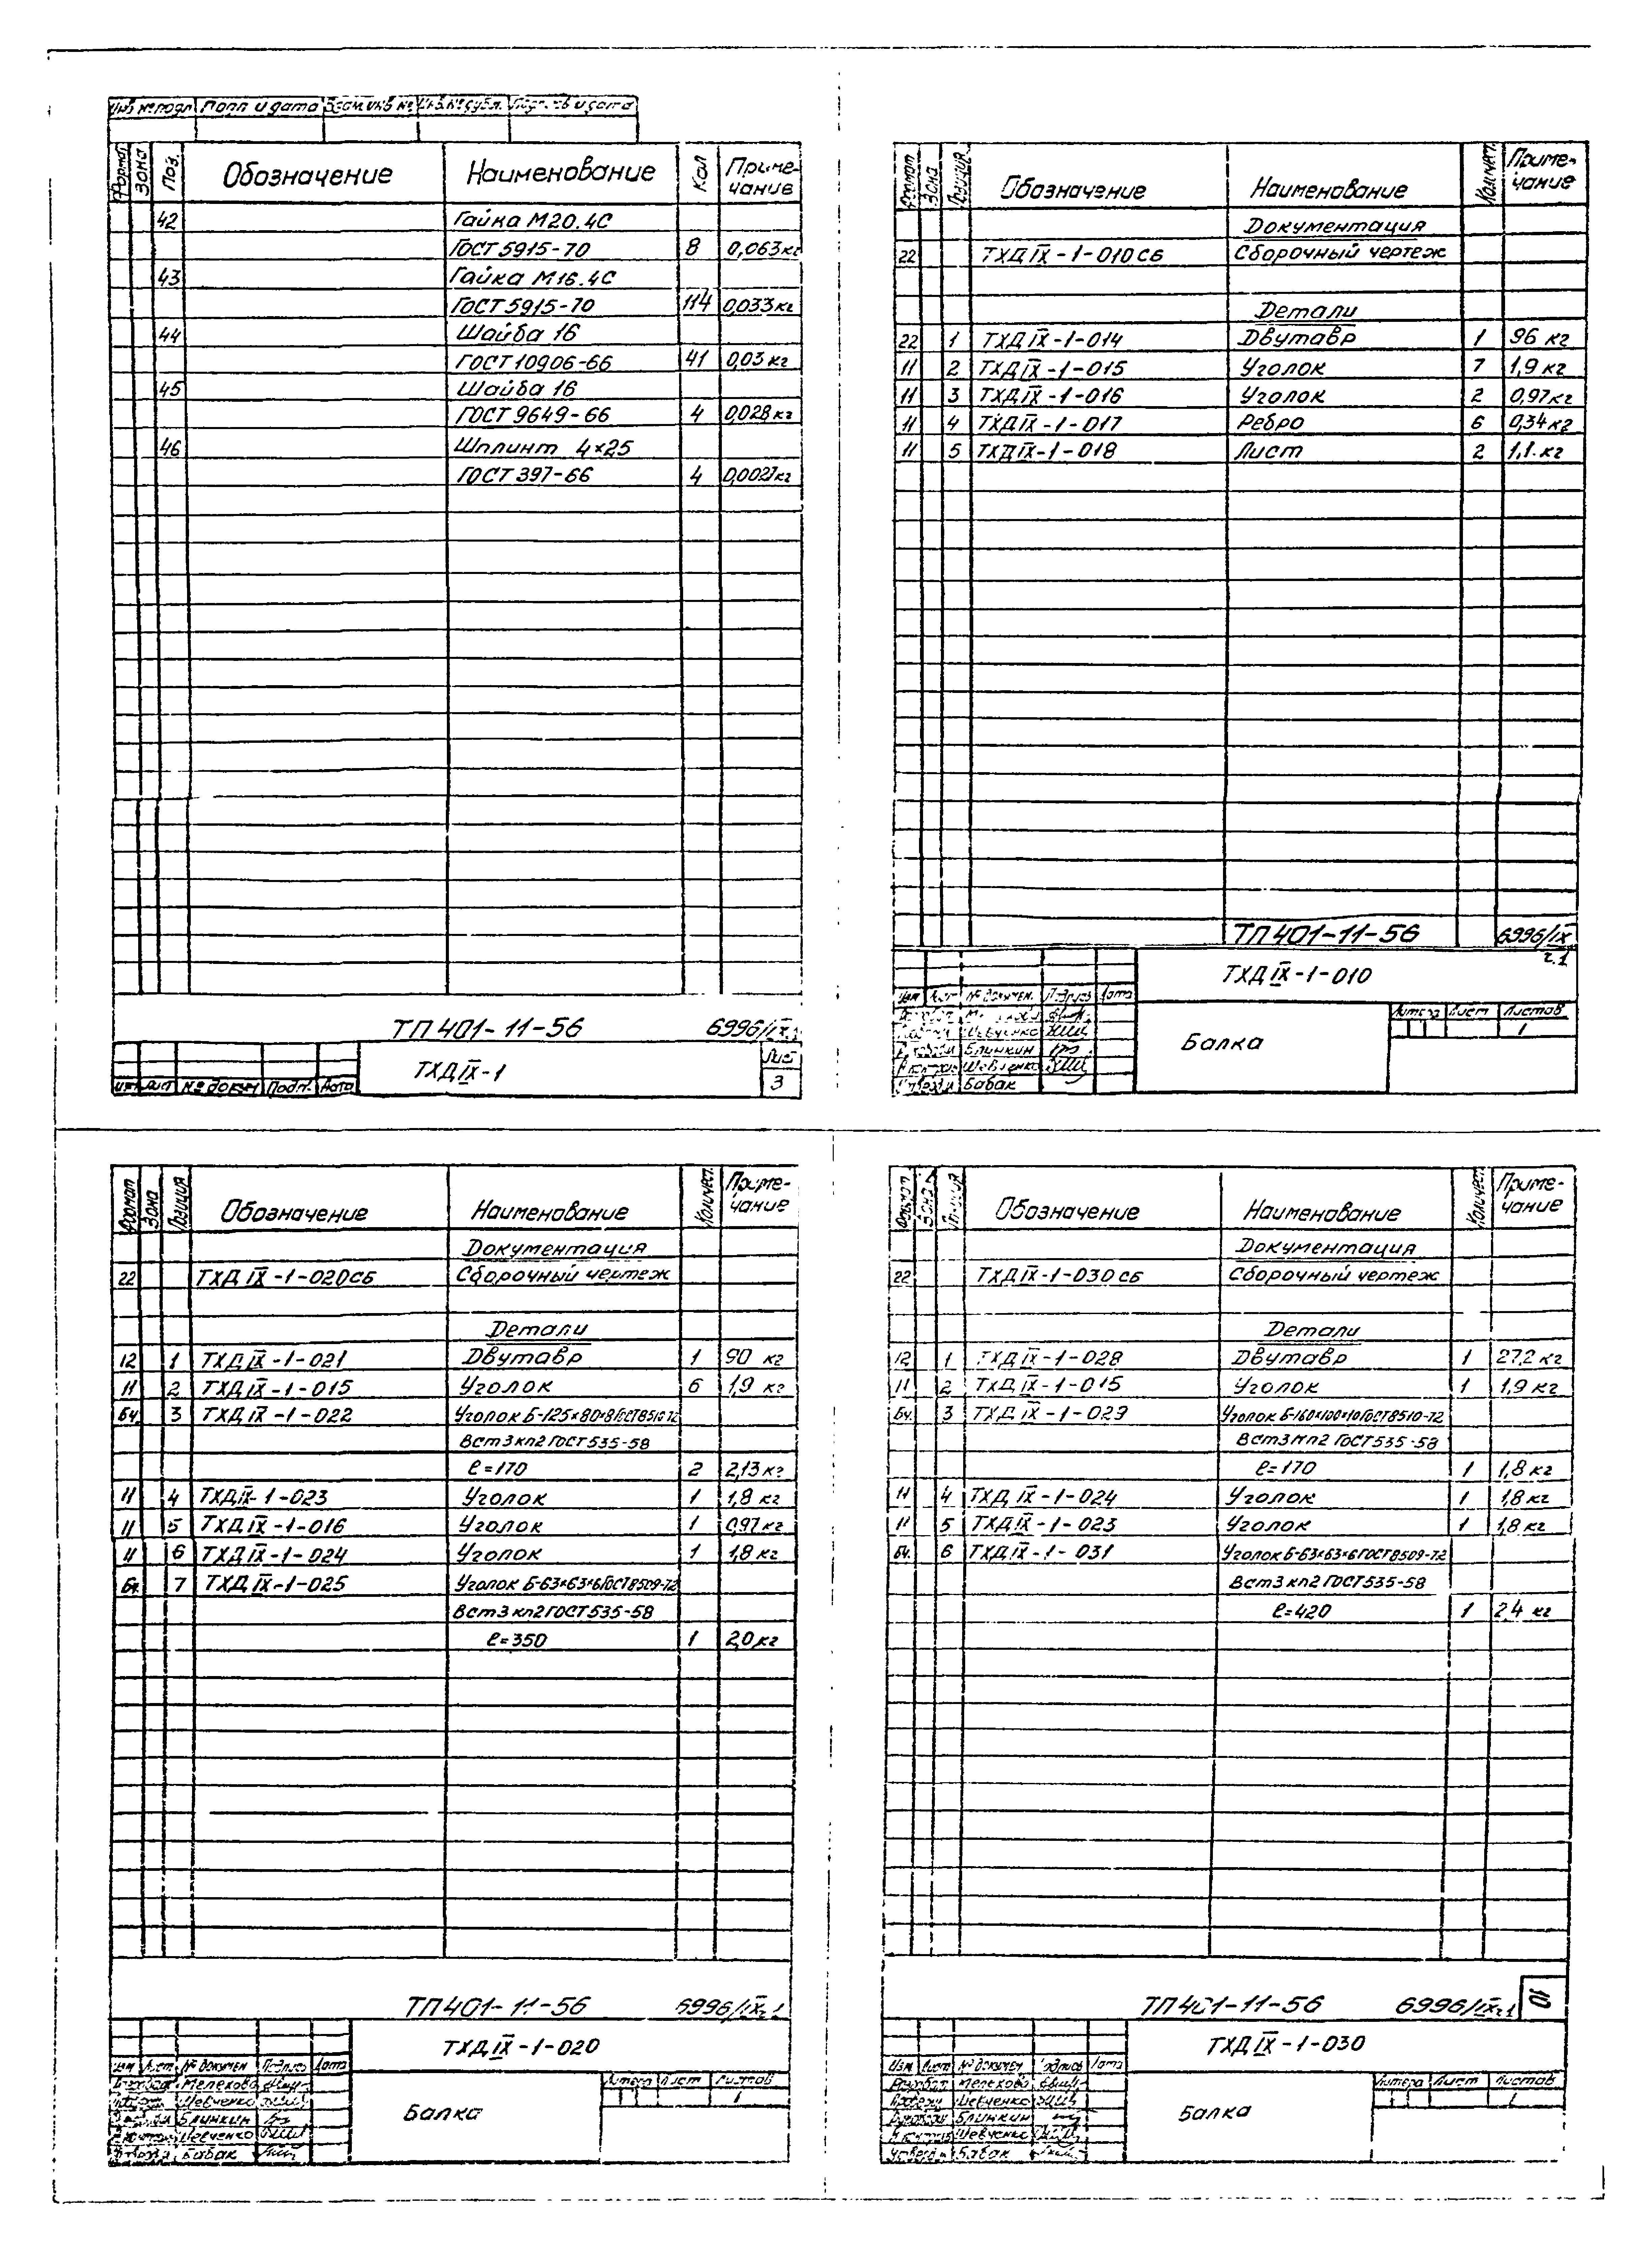 Инв № подл Подп и дата Взам.инв № Инв.№ дубл. Подпись и дата
Формат Зона Поз. Обозначение Наименование Кол Приме-
чание
42 Гайка М20.4С
ГОСТ 5915-70 8 0,063кг
43 Гайка М16.4С
ГОСТ 5915-70 114 0,033кг
44 Шайба 16
ГОСТ 10906-66 41 0,03 кг
45 Шайба 16
ГОСТ 9649-66 4 0,028 кг
46 Шплинт 4×25
ГОСТ 397-66 4 0,002кг
ТП 401-11-56 6996/IX
ТХД IX-1
Лист
3
Изм Лист № докум Подп. Дата
Формат Зона Позиция Обозначение Наименование Количест. Приме-
чание
Документация
22 ТХД IX-1-010СБ Сборочный чертеж
Детали
22 1 ТХД IX-1-014 Двутавр 1 96 кг
11 2 ТХД IX-1-015 Уголок 7 1,9 кг
11 3 ТХД IX-1-016 Уголок 2 0,97кг
11 4 ТХД IX-1-017 Ребро 6 0,34кг
11 5 ТХД IX-1-018 Лист 2 1,1.кг
ТП 401-11-56 6996/IX
ч.1
ТХД IX-1-010
Изм Лист № докумен. Подпись Дата
Балка
Литера Лист Листов
1
Шевченко
Блинкин
Шевченко
Бабак
Формат Зона Позиция Обозначение Наименование Количест. Приме-
чание
Документация
22 ТХД IX-1-020СБ Сборочный чертеж
Детали
12 1 ТХД IX-1-021 Двутавр 1 90 кг
11 2 ТХД IX-1-015 Уголок 6 1,9 кг
Бч. 3 ТХД IX-1-022 Уголок Б-125×80×8ГОСТ8510-72
Вст3кп2 ГОСТ535-58
ℓ=170 2 2,13кг
11 4 ТХД IX-1-023 Уголок 1 1,8 кг
11 5 ТХД IX-1-016 Уголок 1 0,97 кг
11 6 ТХД IX-1-024 Уголок 1 1,8 кг
Бч. 7 ТХД IX-1-025 Уголок Б-63×63×6ГОСТ8509-72
Вст3кп2ГОСТ535-58
ℓ=350 1 2,0кг
ТП 401-11-56 6996/IXч1
ТХД IX-1-020
Изм Лист № докумен Подпись Дата
Балка
Литера Лист Листов
1
Мелехова
Шевченко
Блинкин
Шевченко
Бабак
Формат Зона Позиция Обозначение Наименование Количест. Приме-
чание
Документация
22 ТХД IX-1-030СБ Сборочный чертеж
Детали
12 1 ТХД IX-1-028 Двутавр 1 27,2 кг
11 2 ТХД IX-1-015 Уголок 1 1,9 кг
Бч. 3 ТХД IX-1-029 Уголок Б-160×100×10ГОСТ8510-72
Вст3кп2 ГОСТ535-58
ℓ=170 1 1,8 кг
11 4 ТХД IX-1-024 Уголок 1 1,8 кг
11 5 ТХД IX-1-023 Уголок 1 1,8кг
Бч. 6 ТХД IX-1-031 Уголок Б-63×63×6ГОСТ8509-72
Вст3кп2ГОСТ535-58
ℓ=420 1 2,4 кг
ТП 401-11-56 6996/IXч1 10
ТХД IX-1-030
Изм Лист № докумен Подпись Дата
Балка
Литера Лист Листов
1
Разработ Мелехова
Проверил Шевченко
Блинкин
Шевченко
Бабак